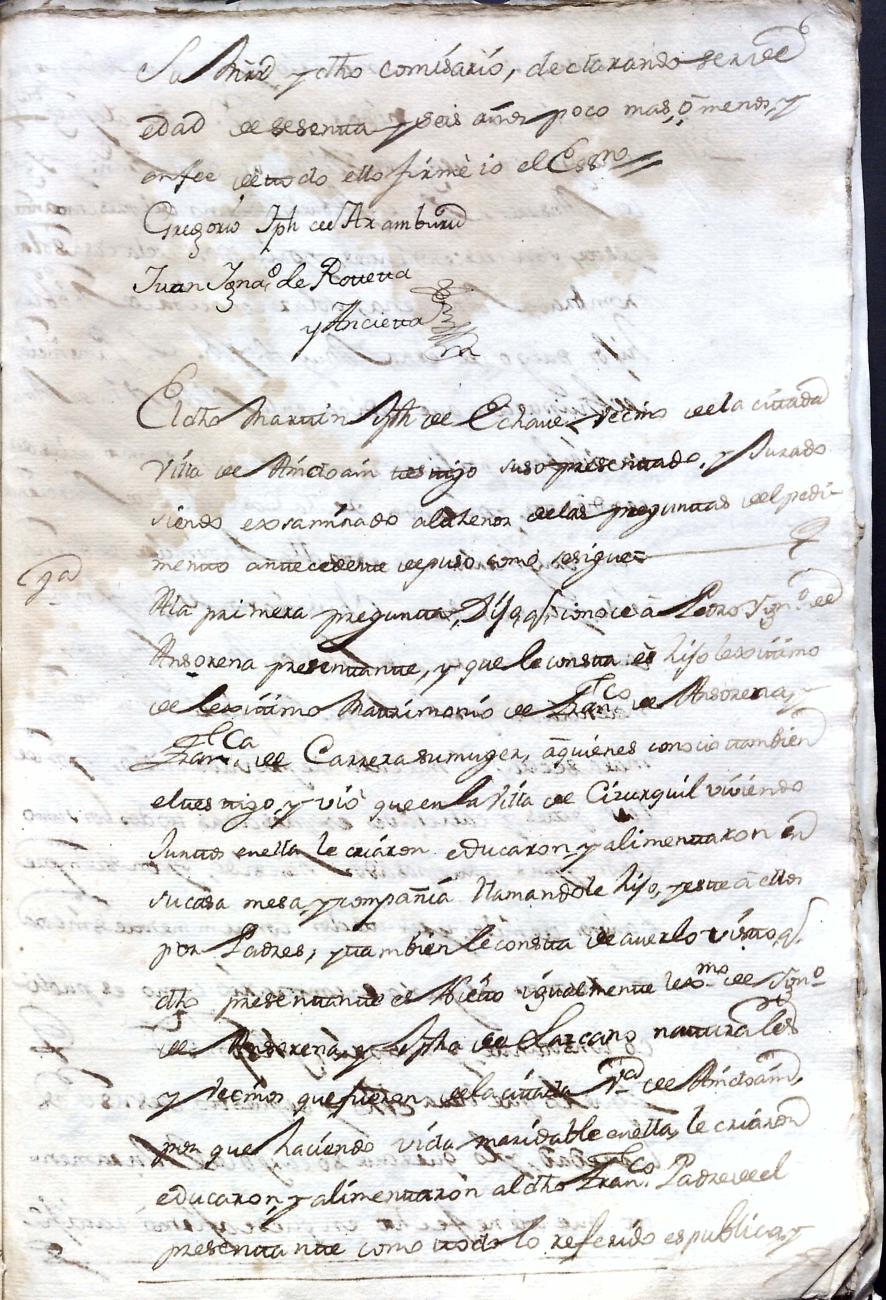 6
Su Mrd y dho comisario, declarando ser de
edad de sesenta y seis años poco mas, ô menos, y
en fee de todo ello firmè io el Essno
Gregorio Jph de Aramburu
Juan Ignaº de Roveta
y Ancieta
El dho Martin Jph de Echave vecino de la citada
Villa de Amdoain testigo suso presentado, y Jurado
siendo exsaminado al thenor de las preguntas del pedi-
mento antecedente depuso como se sigue
1ª
A la primera pregunta, Dijo, qe conoce â Pedro Ignº de
Ansorena presentante, y que le consta es hijo lexitimo
de lexitimo Matrimonio de Franco de Ansorena, y
Franca de Carrera su muger, â quienes conocio tambien
el testigo, y viò que en la Villa de Cirurquil viviendo
Juntos en ella le criàron educaron, y alimentaron en
su casa mesa, y compañia llamandole hijo, y este â ellos
por Padres, y tambien le consta de averlo visto, qe
dho presentante es Nieto igualmente lexmo de Ignº
de Ansorena, y Jpha de Lazcano naturales
y vecinos que fueron de la citada Vª de Amdoain,
por que haciendo vida maridable en ella, le criàron
educaron, y alimentaron al dho Franco Padre de el
presentante como todo lo referido es publico, y